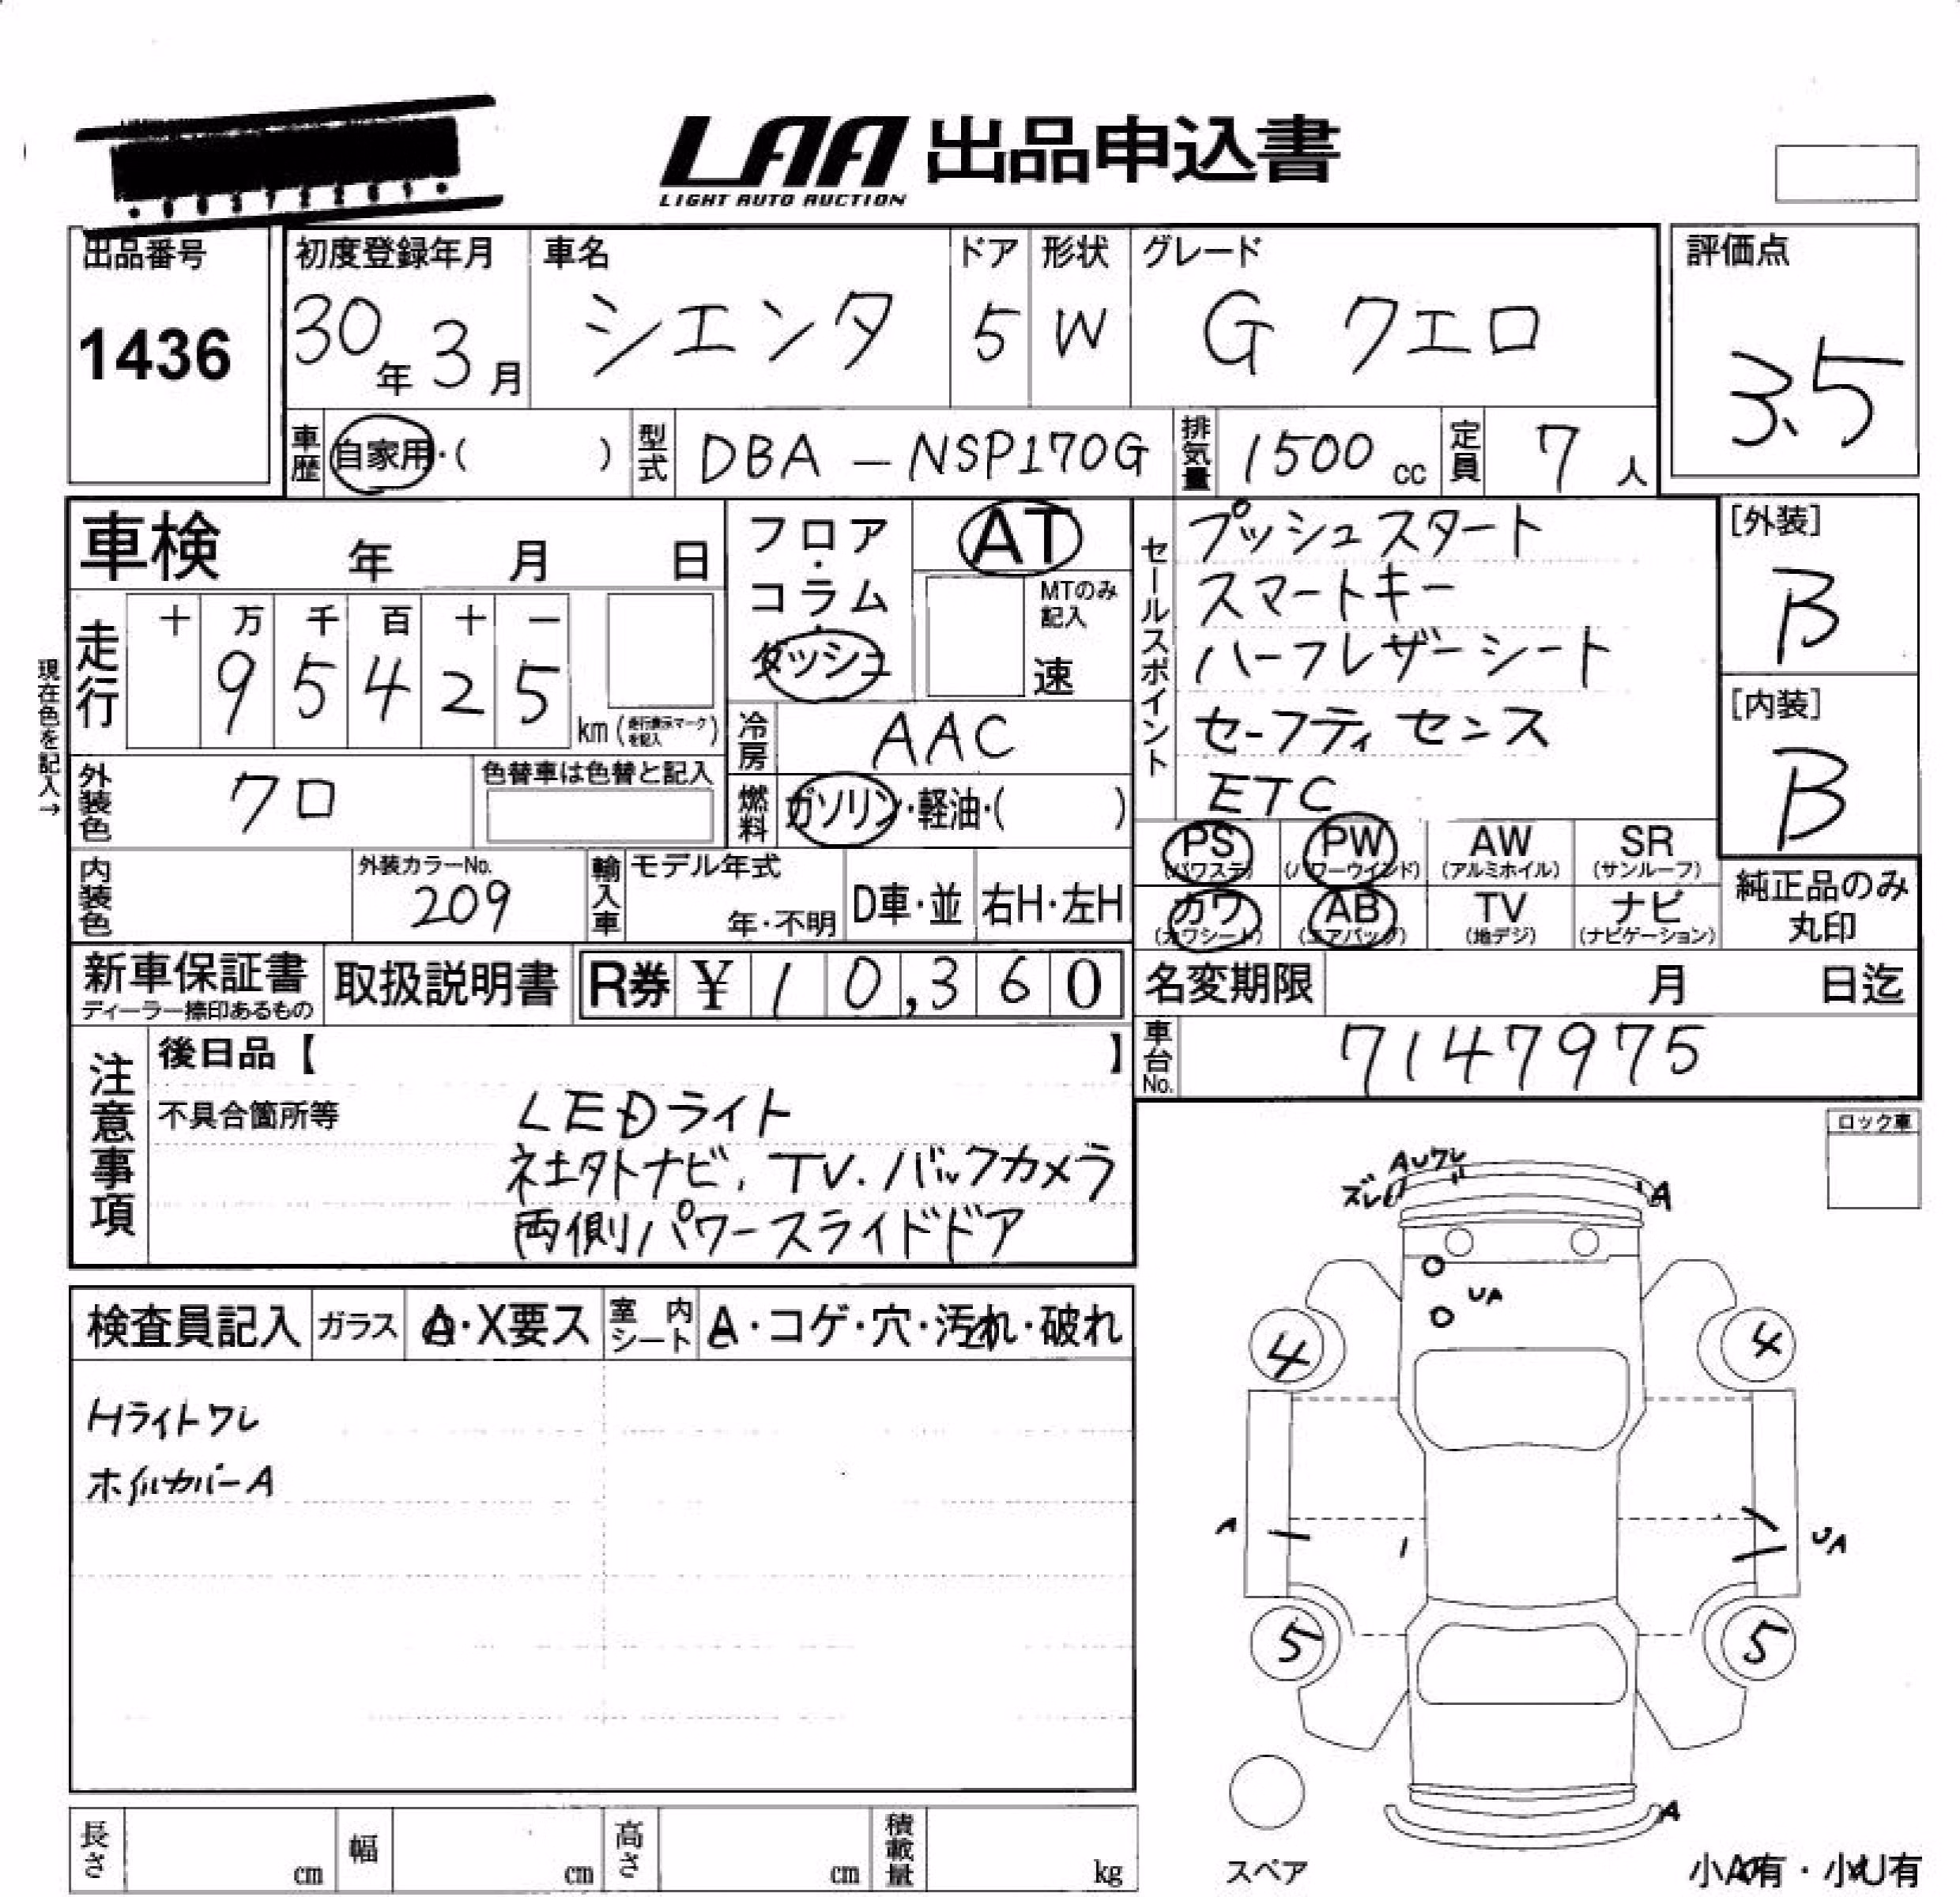 LAA 出品申込書
LIGHT AUTO AUCTION
出品番号 初度登録年月 車名 ドア 形状 グレード 評価点
1436 30年 3月 シエンタ 5 W G クエロ 3.5
車歴 自家用・( ) 型式 DBA-NSP170G 排気量 1500cc 定員 7人
車検 年 月 日
フロア・コラム・ダッシュ
AT
MTのみ記入
速
セールスポイント
プッシュスタート
スマートキー
ハーフレザーシート
セーフティセンス
ETC
[外装]
B
[内装]
B
現在色を記入→
走行 十 万 千 百 十 一
9 5 4 2 5 km(走行表示マークを記入)
冷房 AAC
外装色 クロ 色替車は色替と記入
燃料 ガソリン・軽油・( )
PS (パワステ) PW (パワーウインド) AW (アルミホイル) SR (サンルーフ)
カワ (カワシート) AB (エアバッグ) TV (地デジ) ナビ (ナビゲーション)
純正品のみ丸印
内装色 外装カラーNo. 209 輸入車 モデル年式 年・不明 D車・並 右H・左H
新車保証書 ディーラー捺印あるもの 取扱説明書 R券 ¥ 10,360
名変期限 月 日迄
車台No. 7147975
注意事項
後日品【 】
不具合箇所等 LEDライト
社外ナビ、TV.バックカメラ
両側パワースライドドア
ロック車
検査員記入 ガラス A・X要ス 室内シート A・コゲ・穴・汚れ・破れ
Hライトワレ
ホイルカバーA
AUワレ
ズレ
A
UA
4 4
A UA
5 5
A
スペア
小A有・小U有
長さ cm 幅 cm 高さ cm 積載量 kg